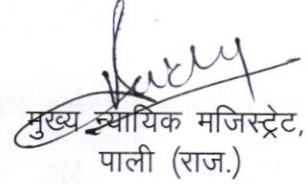 मुख्य न्यायिक मजिस्ट्रेट,
पाली (राज.)